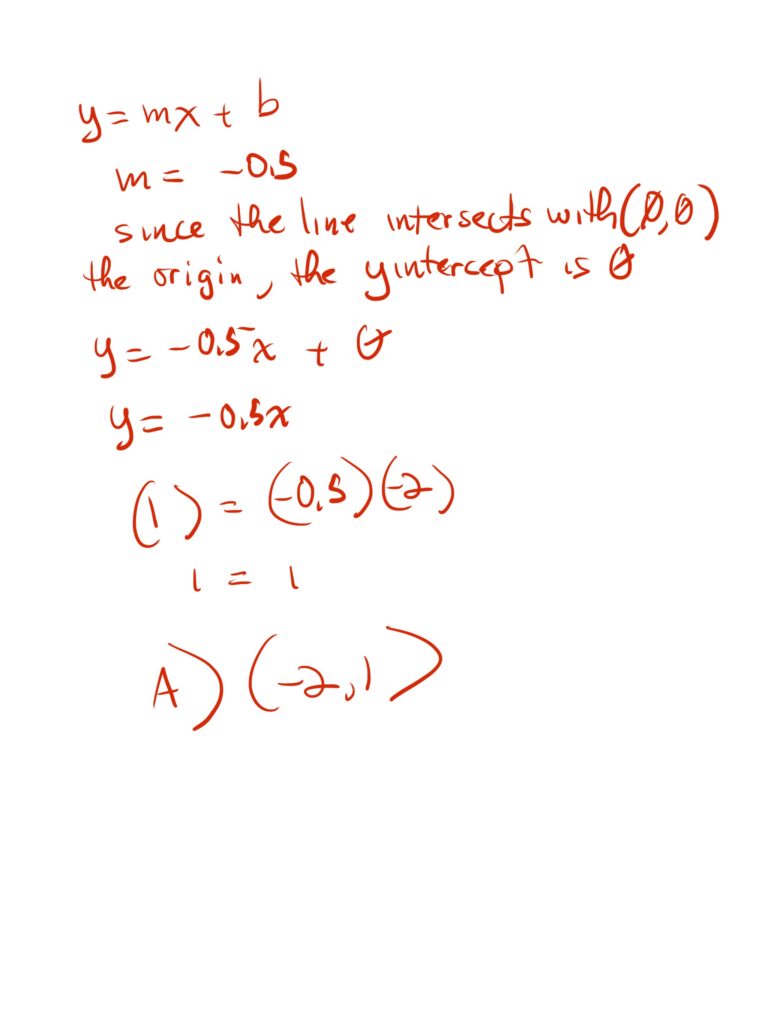 y = mx + b
m = -0.5
since the line intersects with (0,0)
the origin, the y intercept is 0
y = -0.5x + 0
y = -0.5x
(1) = (-0.5)(-2)
1 = 1
A) (-2,1)